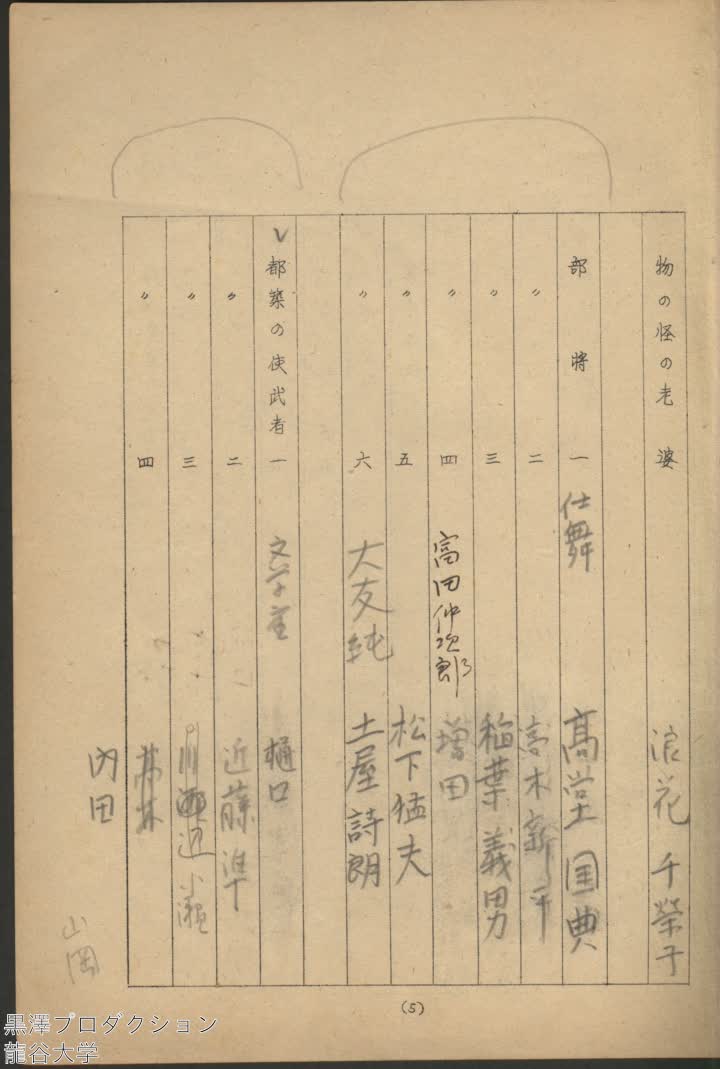 物の怪の老婆 浪花千榮子
部将一 仕舞 高堂国典
〃 二 高木新平
〃 三 稲葉義男
〃 四 富田仲次郎 増田
〃 五 松下猛夫
〃 六 大友純 土屋詩朗
レ
都築の使武者一 文学座 樋口
〃 二 近藤準
〃 三 川 近 小瀬
〃 四
内田
山岡
(5)
黒澤プロダクション
龍谷大学